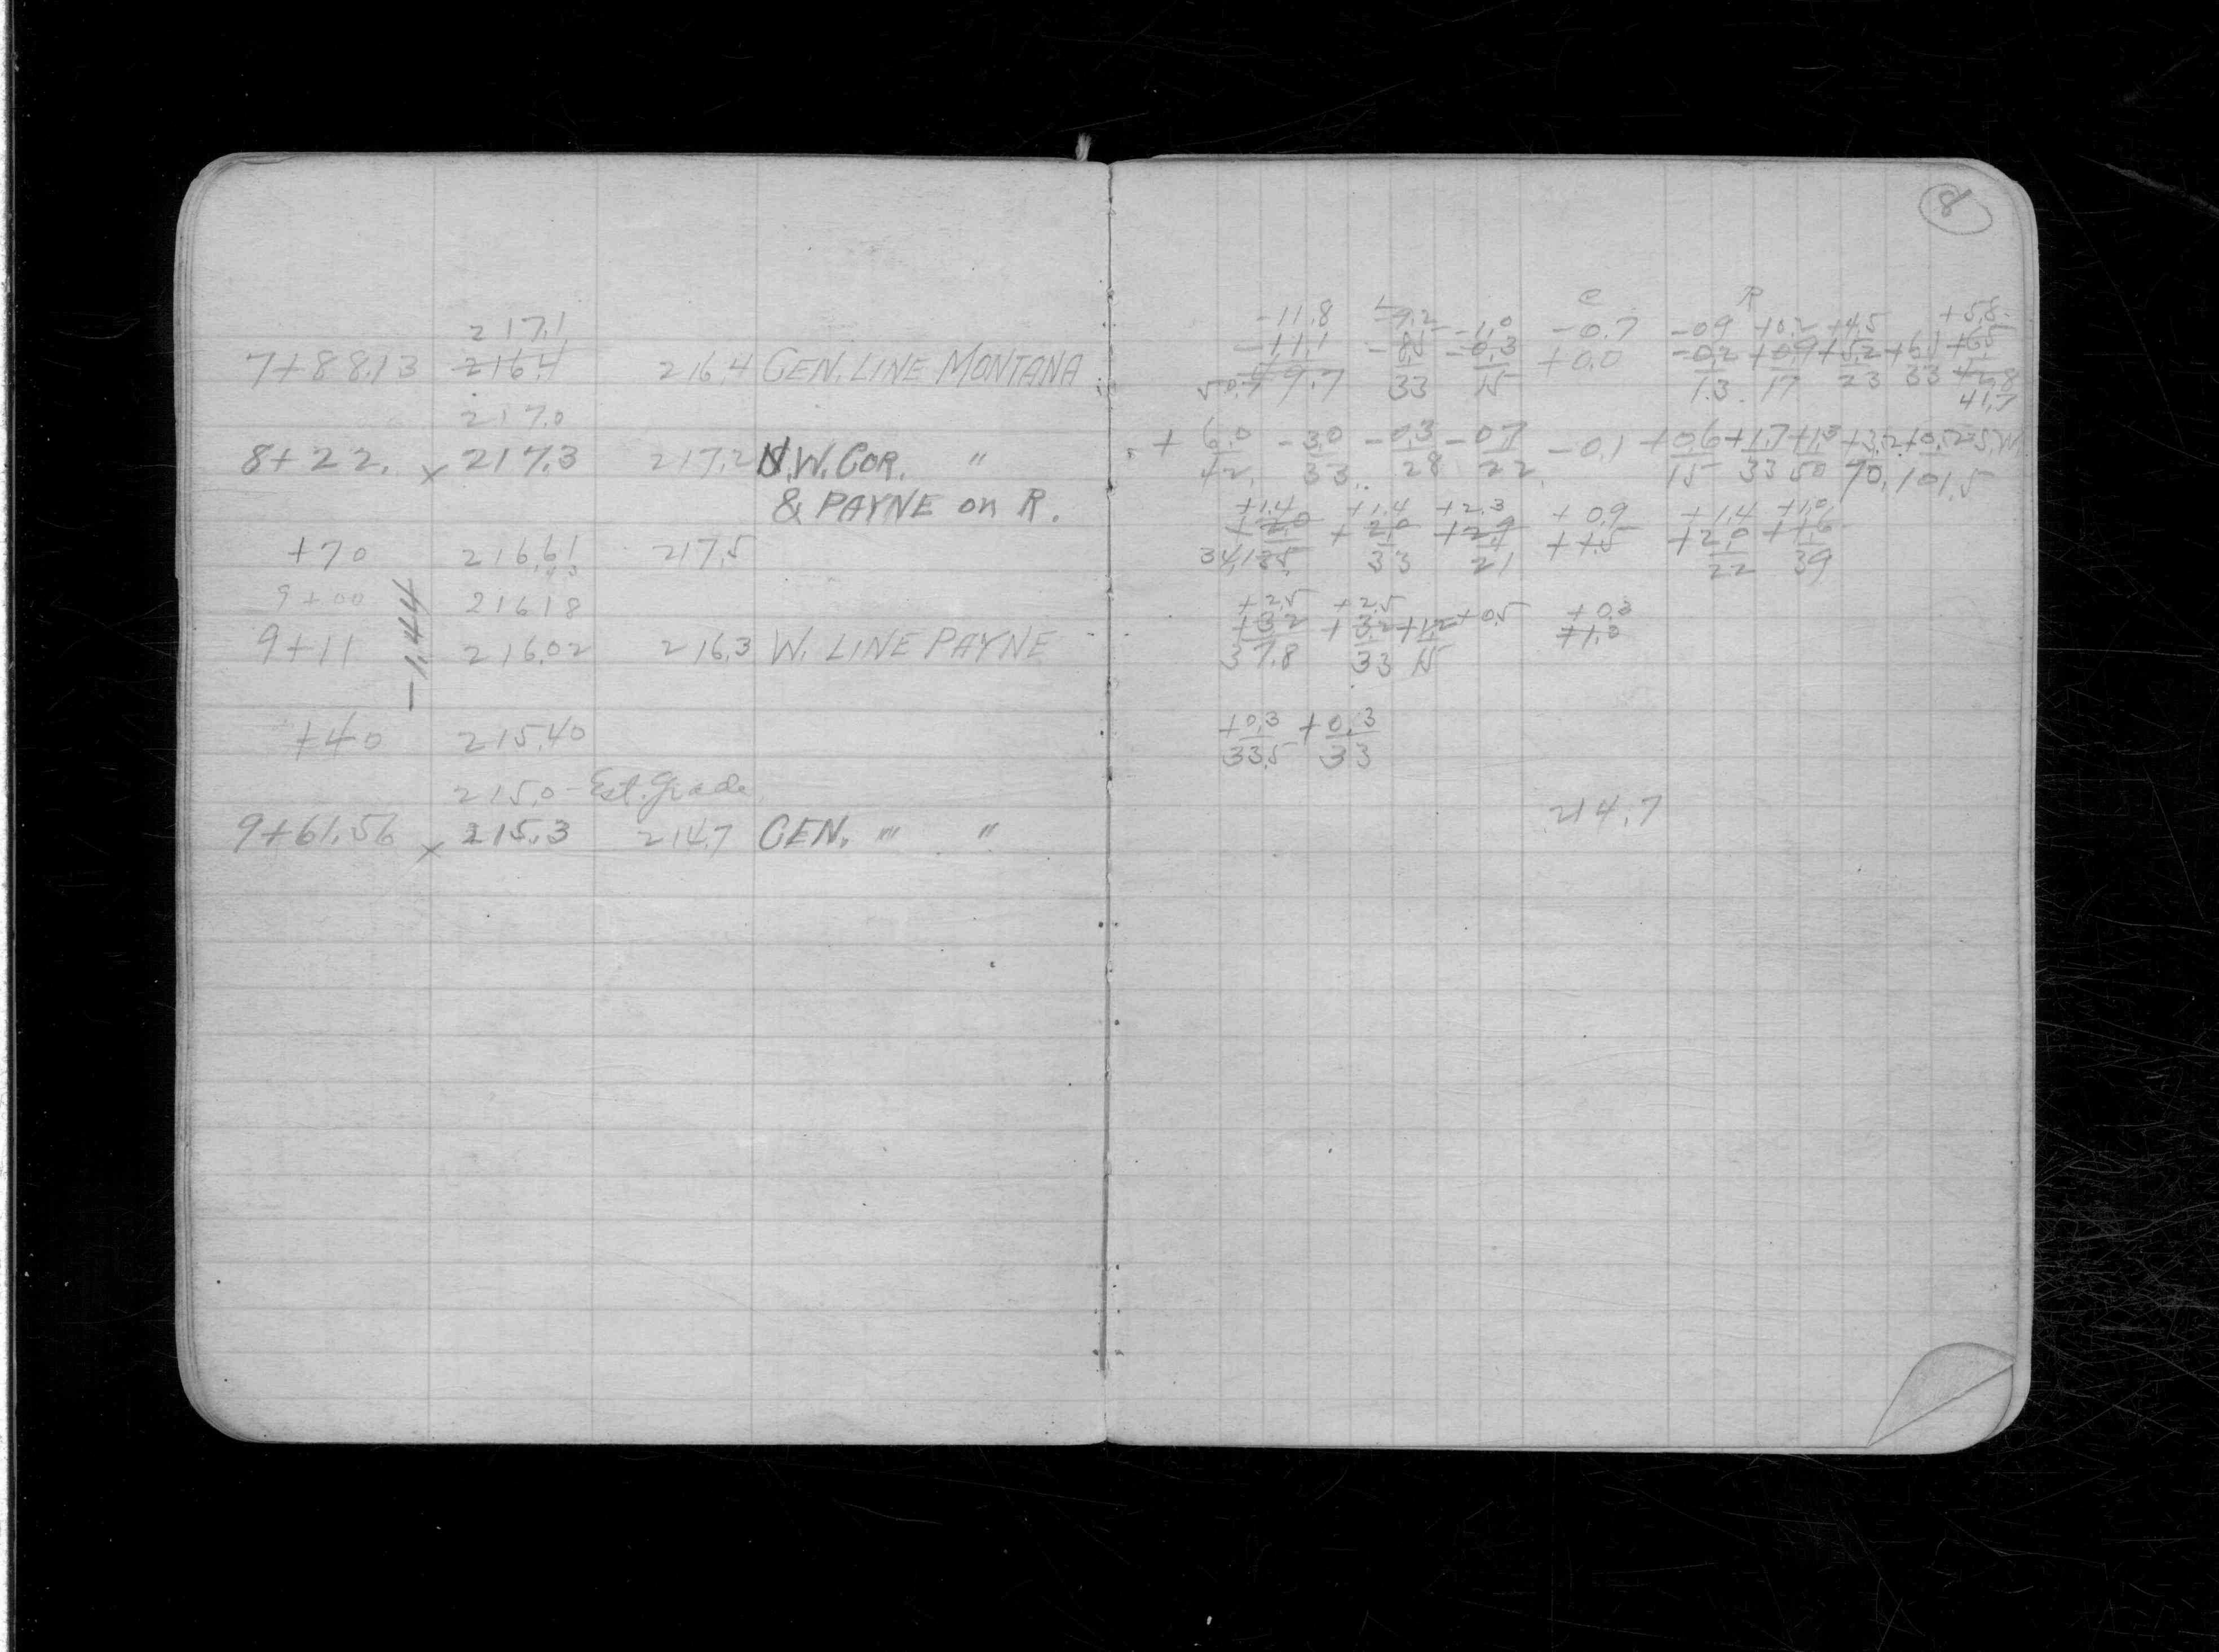 217.1
7+88.13 216.4 216.4 CEN. LINE MONTANA
217.0
8+22. x 217.3 217.2 N.W. COR. "
& PAYNE on R.
+70 216.61 217.5
9+00 216.18
-1.44
9+11 216.02 216.3 W. LINE PAYNE
+40 215.40
215.0 - Est. Grade
9+61.56 x 215.3 214.7 CEN. " "
8
L C R
-11.8 -9.2 -1.0 -0.7 -0.9 +0.2 +4.5 +5.8
-11.1 -8.5 -0.3 +0.0 -0.2 +0.9 +5.2 +6.1 +6.5
50.7 49.7 33 15 13 17 23 33 42.8
41.7
+6.0 -3.0 -0.3 -0.7 -0.1 +0.6 +1.7 +1.3 +3.2 +0.2 S.W.
42. 33. 28 22. 15 33 50 70. 101.5
+1.4 +1.4 +2.3 +0.9 +1.4 +1.0
+2.0 +2.0 +2.9 +1.5 +2.0 +1.6
34.1 35. 33 21 22 39
+2.5 +2.5 +0.5 +0.3
+3.2 +3.2 +1.2 +1.0
37.8 33 15
+0.3 +0.3
33.5 33
214.7